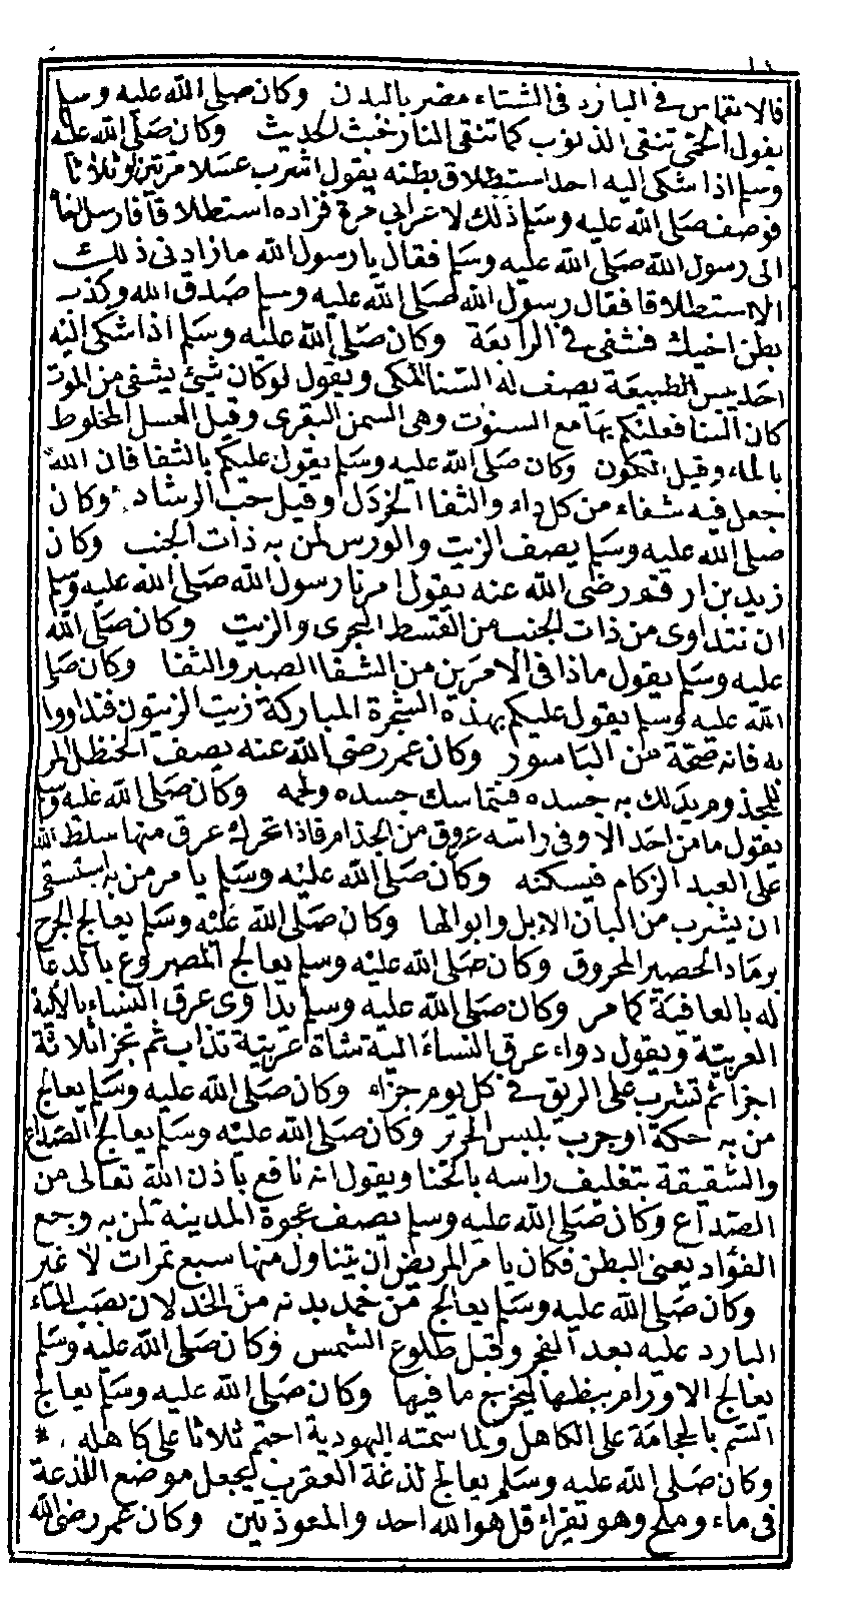 فالانغماس في البارد في الشتاء مضر بالبدن وكان صلى الله عليه وسلم
يقول الحمى تنقى الذنوب كما تنقى النار خبث الحديث وكان صلى الله عليه
وسلم اذا شكى اليه احد استطلاق بطنه يقول اشرب عسلا مرتين او ثلاثا
فوصف صلى الله عليه وسلم ذلك لاعرابي مرة فزاده استطلاقا فارسل
الى رسول الله صلى الله عليه وسلم فقال يا رسول الله ما زادنى ذلك
الا استطلاقا فقال رسول الله صلى الله عليه وسلم صدق الله وكذب
بطن اخيك فشفى في الرابعة وكان صلى الله عليه وسلم اذا شكى اليه
احد يبس الطبيعة يصف له السنا المكى ويقول لو كان شئ يشفى من الموت
كان السنا فعليكم بها مع السنوت وهى السمن البقرى وقيل العسل المخلوط
بالماء وقيل الكمون وكان صلى الله عليه وسلم يقول عليكم بالثفا فان الله
جعل فيه شفاء من كل داء والثفا الخردل وقيل حب الرشاد وكان
صلى الله عليه وسلم يصف الزيت والورس لمن به ذات الجنب وكان
زيد بن ارقم رضى الله عنه يقول امرنا رسول الله صلى الله عليه وسلم
ان نتداوى من ذات الجنب من القسط البحرى والزيت وكان صلى الله
عليه وسلم يقول ماذا في الامرين من الشفا الصبر والثفا وكان صلى
الله عليه وسلم يقول عليكم بهذه الشجرة المباركة زيت الزيتون فتداووا
به فانه صحة من الباسور وكان عمر رضى الله عنه يصف الحنظل المر
للمجذوم يدلك به جسده فيتماسك جسده ولحمه وكان صلى الله عليه وسلم
يقول ما من احد الا وفى راسه عروق من الجذام فاذا تحرك عرق منها سلط الله
على العبد الزكام فيسكنه وكان صلى الله عليه وسلم يامر من به استسقى
ان يشرب من البان الابل وابوالها وكان صلى الله عليه وسلم يعالج الجرح
برماد الحصير المحروق وكان صلى الله عليه وسلم يعالج المصروع بالدعا
له بالعافية كما مر وكان صلى الله عليه وسلم يداوى عرق النساء بالالية
العربية ويقول دواء عرق النساء الية شاة عربية تذاب ثم تجزا ثلاثة
اجزا ثم تشرب على الريق في كل يوم جزاء وكان صلى الله عليه وسلم يعالج
من به حكة او جرب بلبس الحرير وكان صلى الله عليه وسلم يعالج الصداع
والشقيقة بتغليف راسه بالحنا ويقول انه نافع باذن الله تعالى من
الصداع وكان صلى الله عليه وسلم يصف عجوة المدينة لمن به وجع
الفؤاد يعنى البطن فكان يامر المريض ان يتناول منها سبع تمرات لا غير
وكان صلى الله عليه وسلم يعالج من خمد بدنه من الخدلان بصب الماء
البارد عليه بعد الفجر وقبل طلوع الشمس وكان صلى الله عليه وسلم
يعالج الاورام ببطها ليخرج ما فيها وكان صلى الله عليه وسلم يعالج
السم بالحجامة على الكاهل ولما سمته اليهودية احتجم ثلاثا على كاهله
وكان صلى الله عليه وسلم يعالج لدغة العقرب ليجعل موضع اللدغة
فى ماء وملح وهو يقراء قل هو الله احد والمعوذتين وكان عمر رضى الله